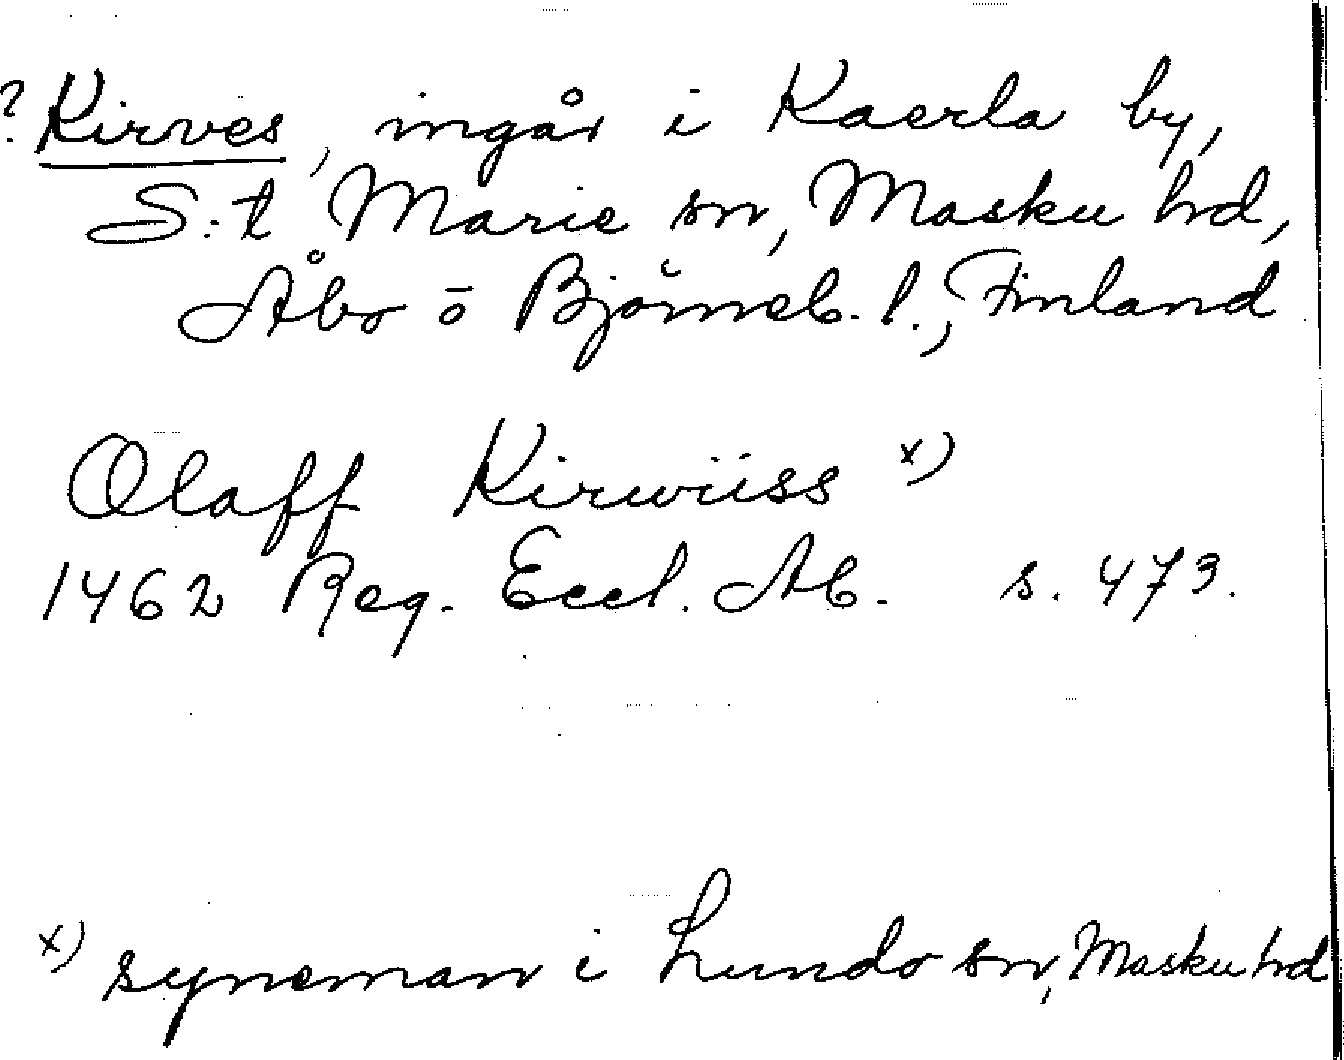 ? Kirves, ingår i Kaerla by,
S:t Marie sn, Masku hd,
Åbo o Björneb. l., Finland
Olaff Kirwiiss x)
1462 Reg. Eccl. Ab. s. 473.
x) syneman i Lundo sn, Masku hd